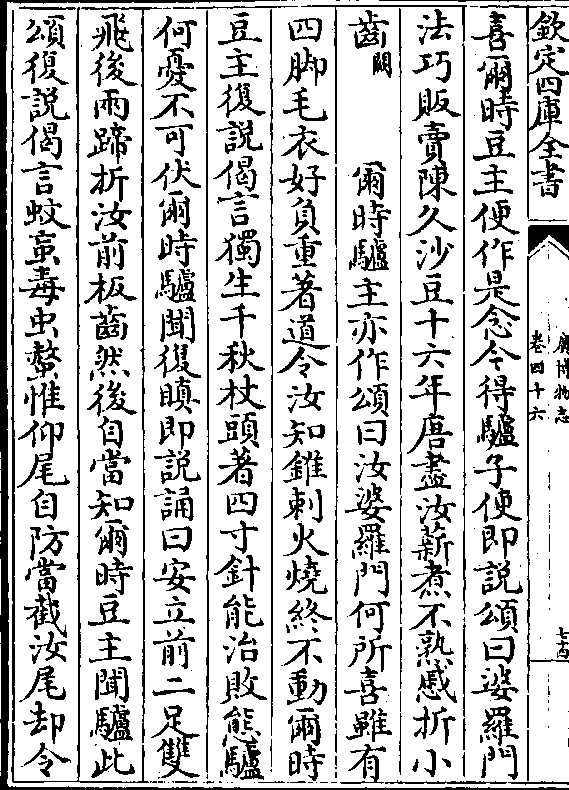 欽定四庫全書
廣博物志
卷四十六
喜爾時豆主便作是念今得驢子便即説頌曰婆羅門
法巧販賣陳久沙豆十六年唐盡汝薪煮不熟慼折小
齒闕 爾時驢主亦作頌曰汝婆羅門何所喜雖有
四脚毛衣好負重著道令汝知錐刺火燒終不動爾時
豆主復説偈言獨生千秋杖頭著四寸針能治敗態驢
何憂不可伏爾時驢聞復瞋即説誦曰安立前二足雙
飛後兩蹄折汝前板齒然後自當知爾時豆主聞驢此
頌復説偈言蚊䖟毒虫螫惟仰尾自防當截汝尾却令